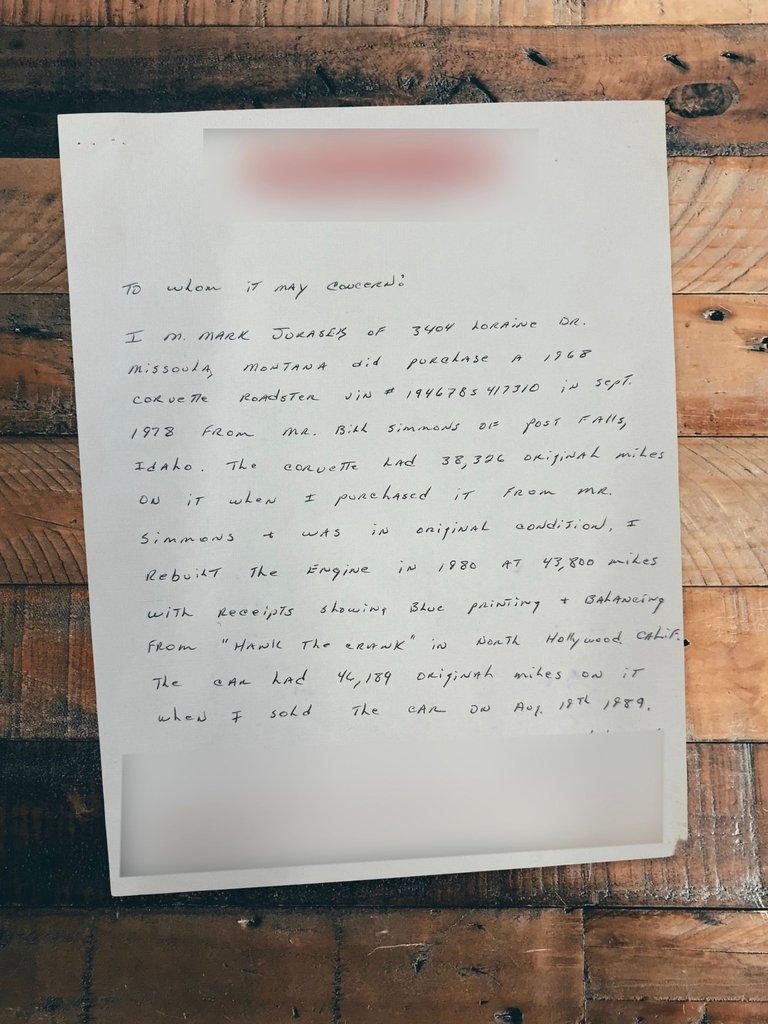 TO whom IT MAY CONCERN:
I M. MARK JURASEK OF 3404 LORAINE DR.
MISSOULA, MONTANA did purchase A 1968
CORVETTE ROADSTER VIN # 194678S417310 in Sept.
1978 FROM MR. Bill Simmons OF POST FALLS,
IdAho. The CORVETTE had 38,326 original miles
ON IT when I purchased IT FROM MR.
Simmons + WAS IN ORIGINAL CONDITION. I
Rebuilt The ENGINE in 1980 AT 43,800 miles
WITH Receipts showing Blue printing + BALANCING
FROM "HANK The CRANK" in NORTH Hollywood CALIF.
The CAR had 46,189 ORIGINAL miles ON IT
when I sold The CAR ON Aug. 18Th 1989.